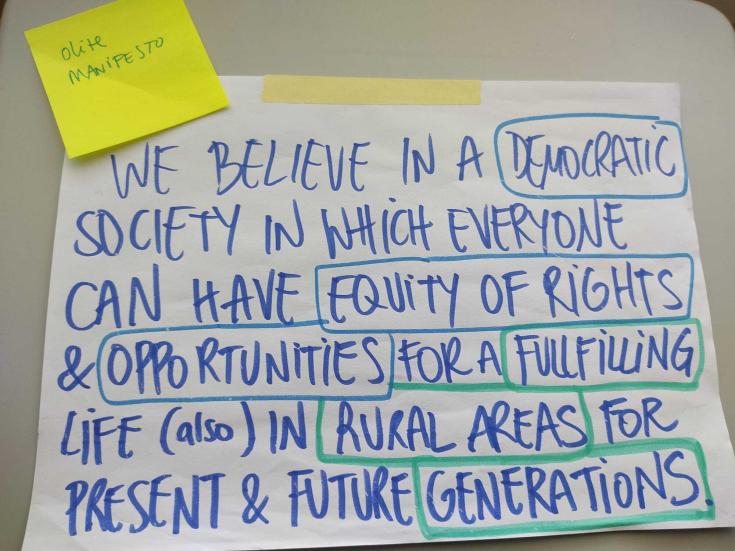 olite
MANIFESTO
WE BELIEVE IN A DEMOCRATIC
SOCIETY IN WHICH EVERYONE
CAN HAVE EQUITY OF RIGHTS
& OPPORTUNITIES FOR A FULLFILLING
LIFE (also) IN RURAL AREAS FOR
PRESENT & FUTURE GENERATIONS.